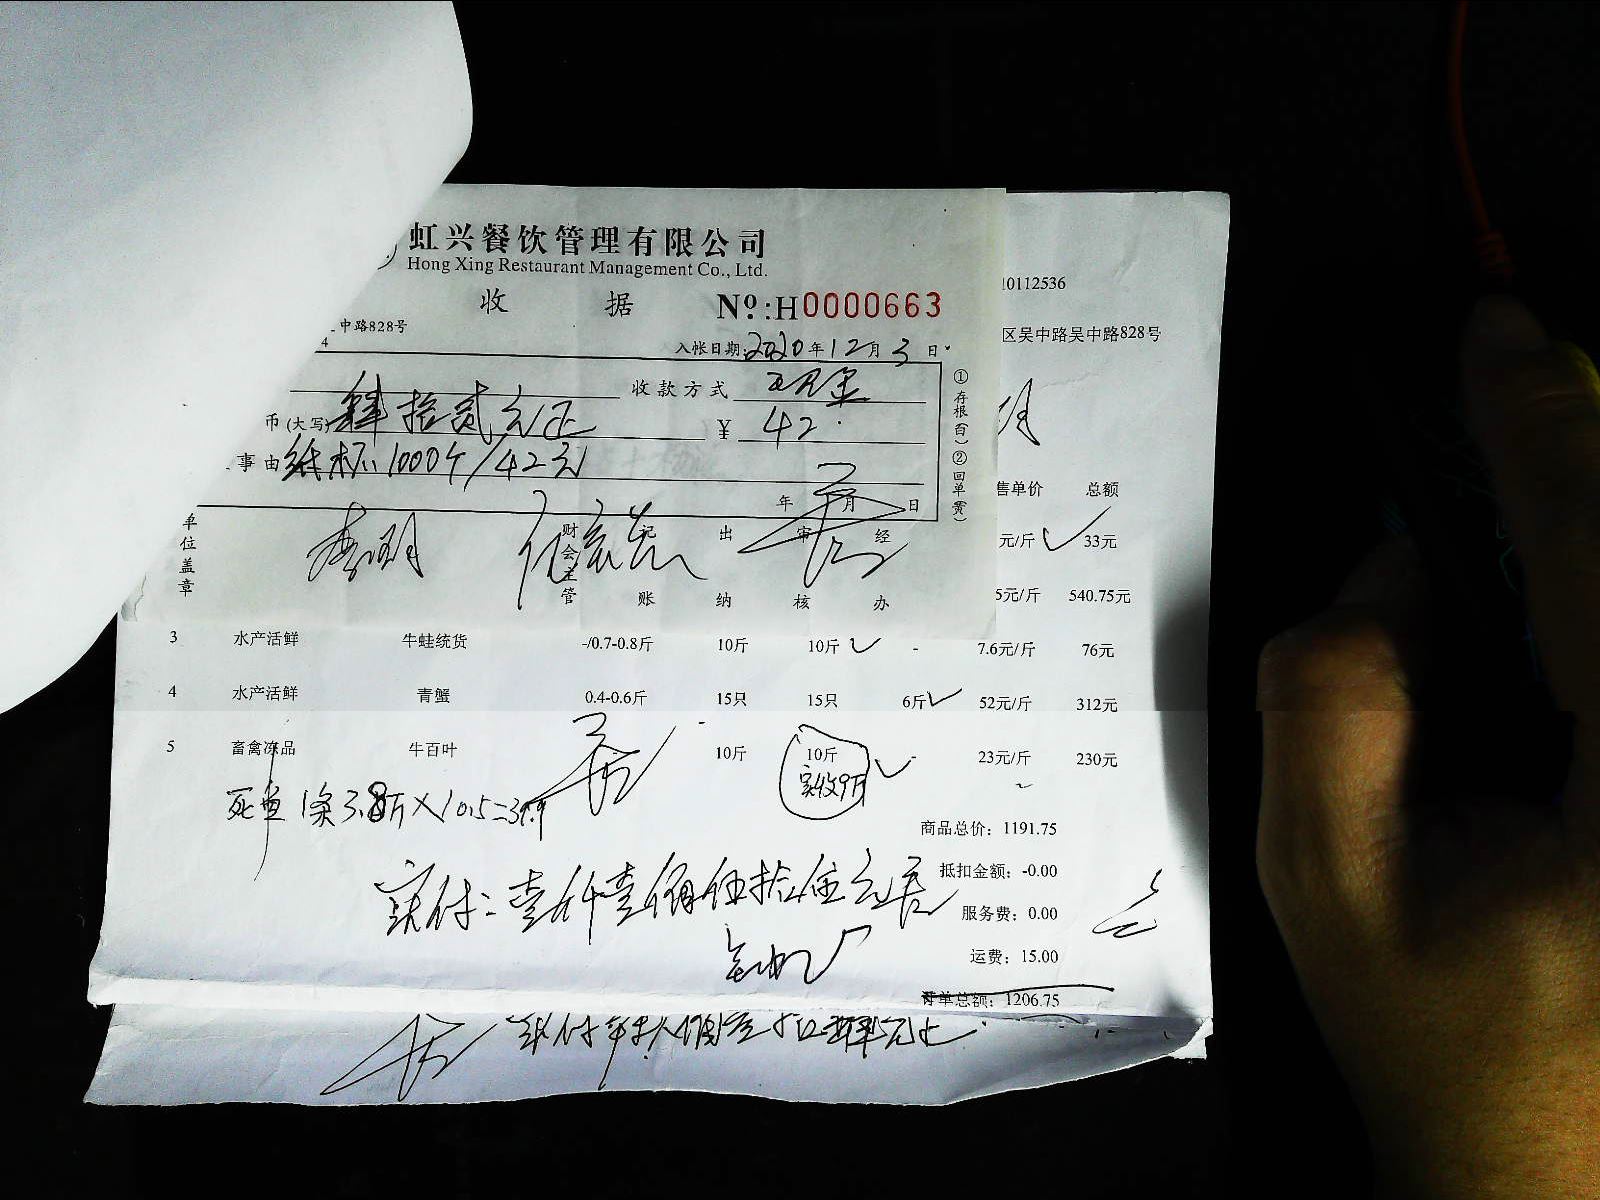 虹兴餐饮管理有限公司
Hong Xing Restaurant Management Co., Ltd.
收据 Nº:H0000663
10112536
中路828号
区吴中路吴中路828号
4
入帐日期:2020年12月3日
收款方式 现金
币(大写)肆拾贰元正 ¥ 42.
事由 纸杯1000个/42元
①存根(白)②回单(黄)
年 月 日
单位盖章
财会主管
记账
出纳
审核
经办
售单价 总额
元/斤 33元
5元/斤 540.75元
3 水产活鲜 牛蛙统货 -/0.7-0.8斤 10斤 10斤 - 7.6元/斤 76元
4 水产活鲜 青蟹 0.4-0.6斤 15只 15只 6斤 52元/斤 312元
5 畜禽冻品 牛百叶 10斤 10斤 23元/斤 230元
实收9斤
1条3.8斤×10.5=39.9
商品总价: 1191.75
抵扣金额: -0.00
实付:壹仟壹佰伍拾伍元
服务费: 0.00
运费: 15.00
订单总额: 1206.75